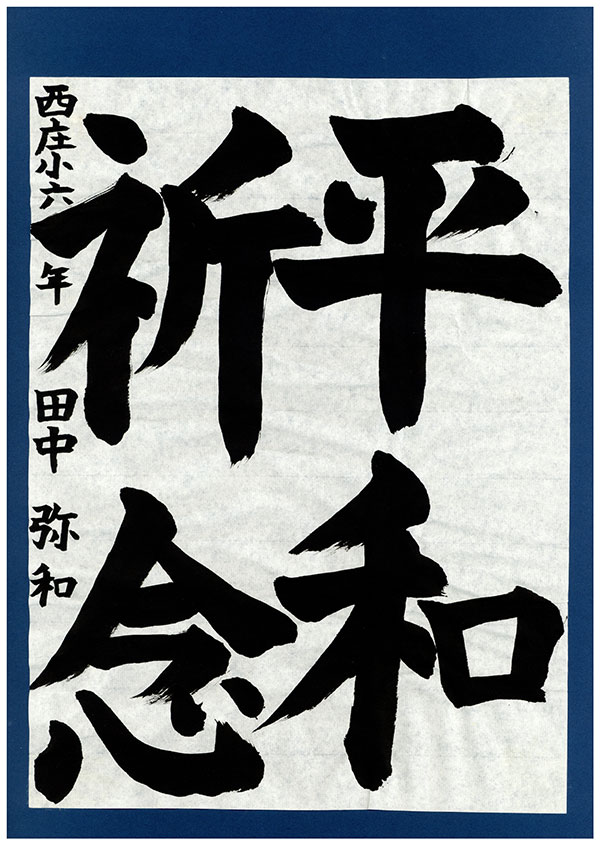 平和
祈念
西庄小六年 田中 弥和